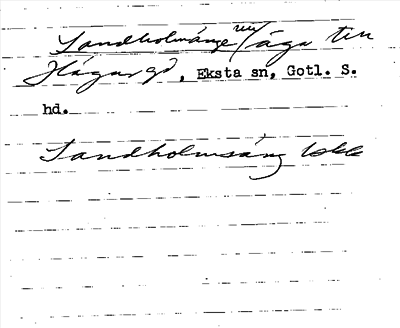 Sandholmänge nu/äga till
Hägur gd, Eksta sn, Gotl. S.
hd.
Sandholmsäng